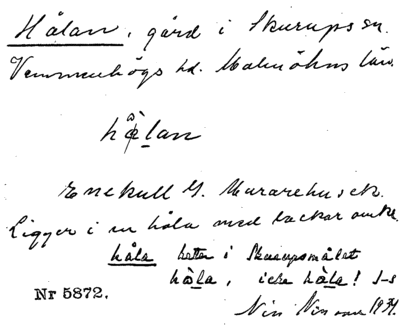 Hålan, gård i Skurups sn.
Vemmenhögs hd. Malmöhus län.
hålan
Enekull G. Murarehusek.
Ligger i en håla med backar omkr.
håla heter i Skurupsmålet
håla, icke håla! J-s
Nils Nilsson 1934.
Nr 5872.